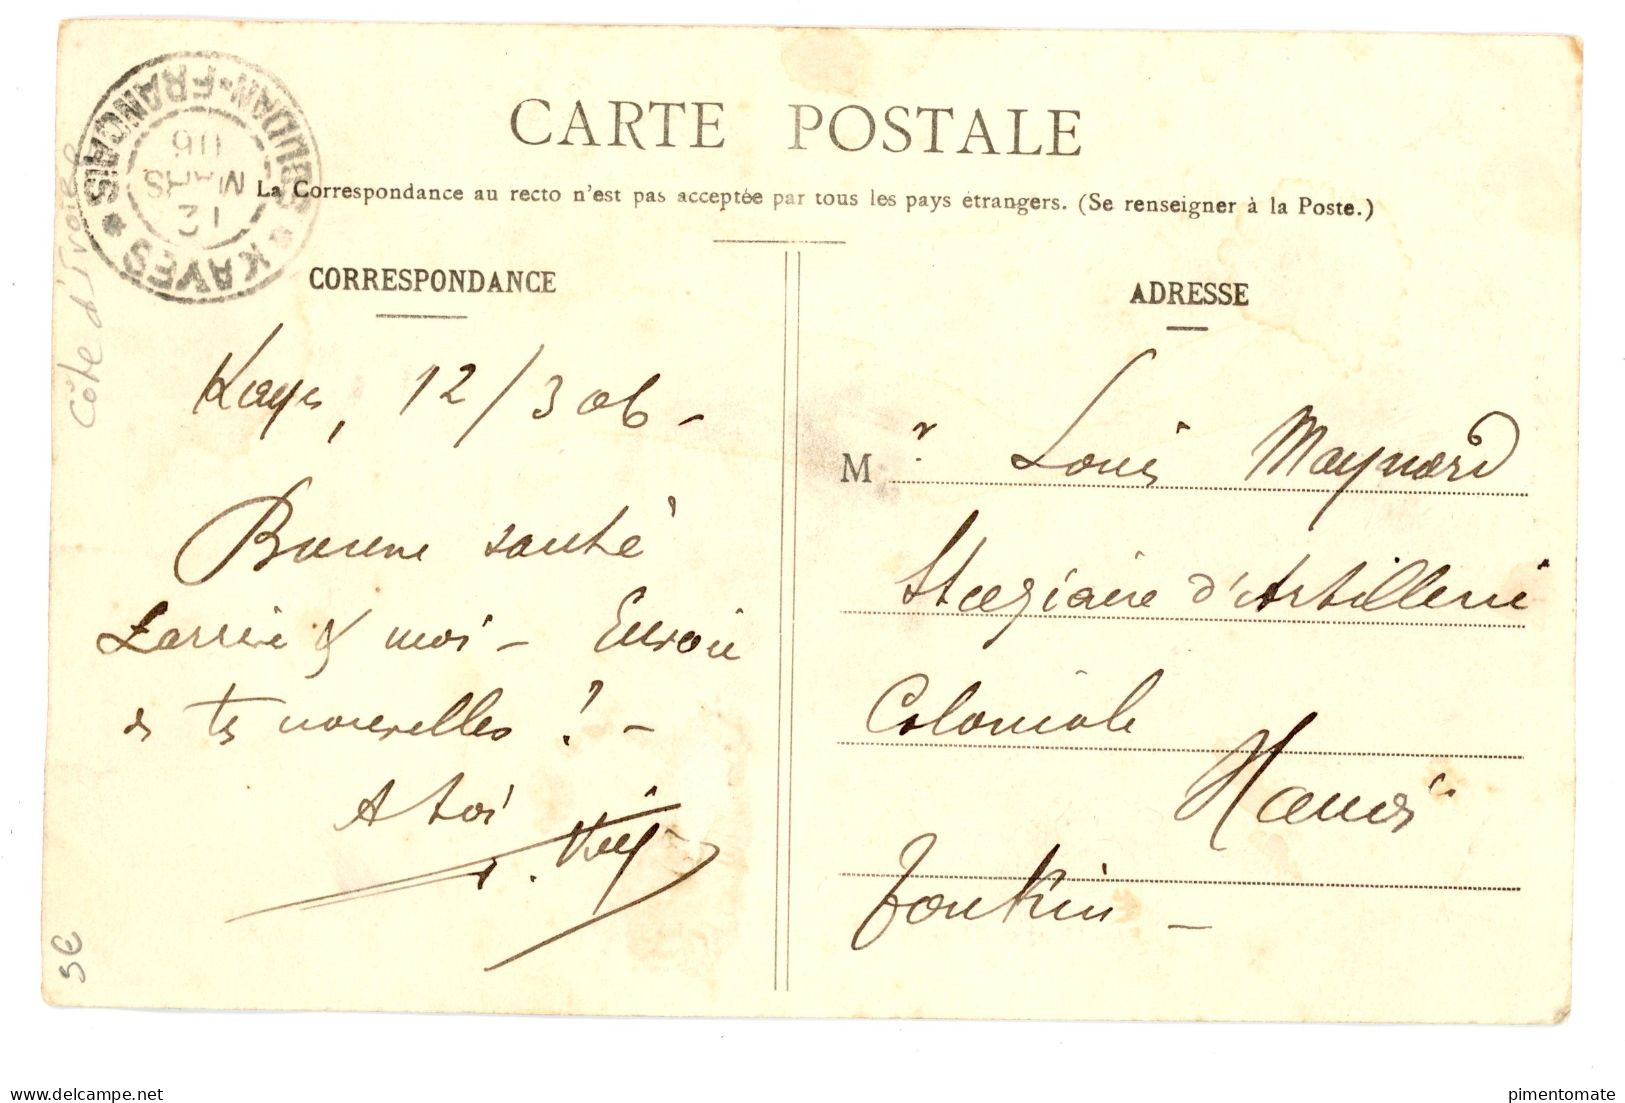 CARTE POSTALE
La Correspondance au recto n'est pas acceptée par tous les pays étrangers. (Se renseigner à la Poste.)
SOUDAN-FRANÇAIS
* KAYES *
12
MARS
06
Côte d'Ivoire
CORRESPONDANCE
Kayes, 12/3 06 -
Bonne santé
& moi - Envoie
de tes nouvelles ! -
A toi
5€
ADRESSE
Mr. Louis Maynard
Stagiaire d'Artillerie
Coloniale
Hanoï
Tonkin -
https://www.delcampe.net
pimentomate